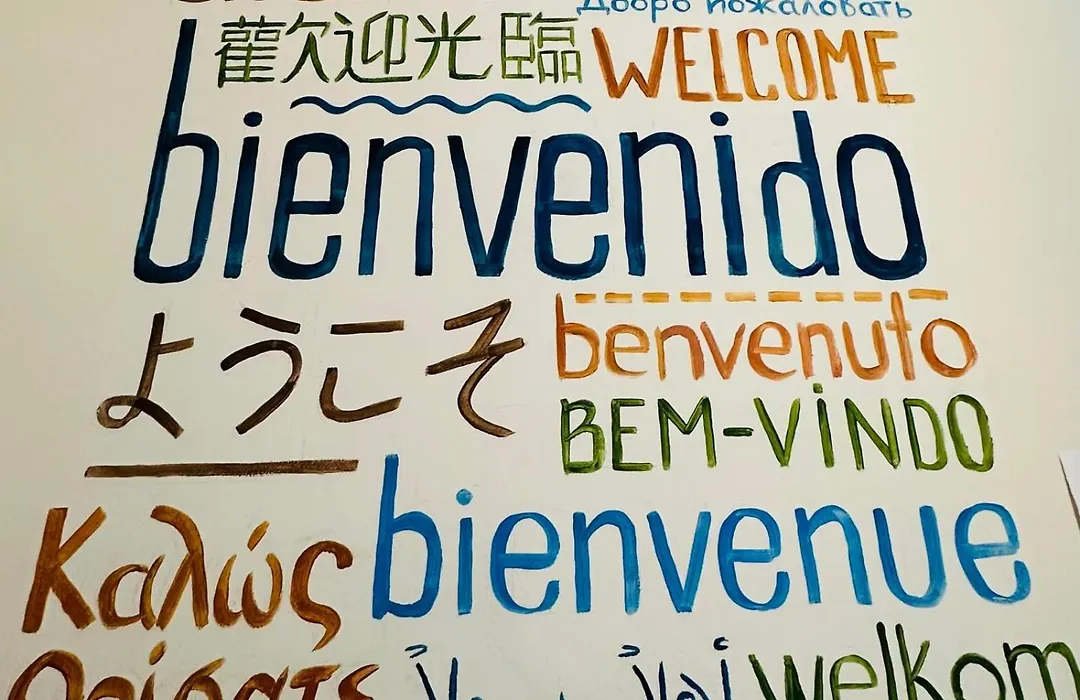 Добро пожаловать
歡迎光臨 WELCOME
bienvenido
ようこそ
benvenuto
BEM-VINDO
Καλώς
bienvenue
Ορίσατε
welkom